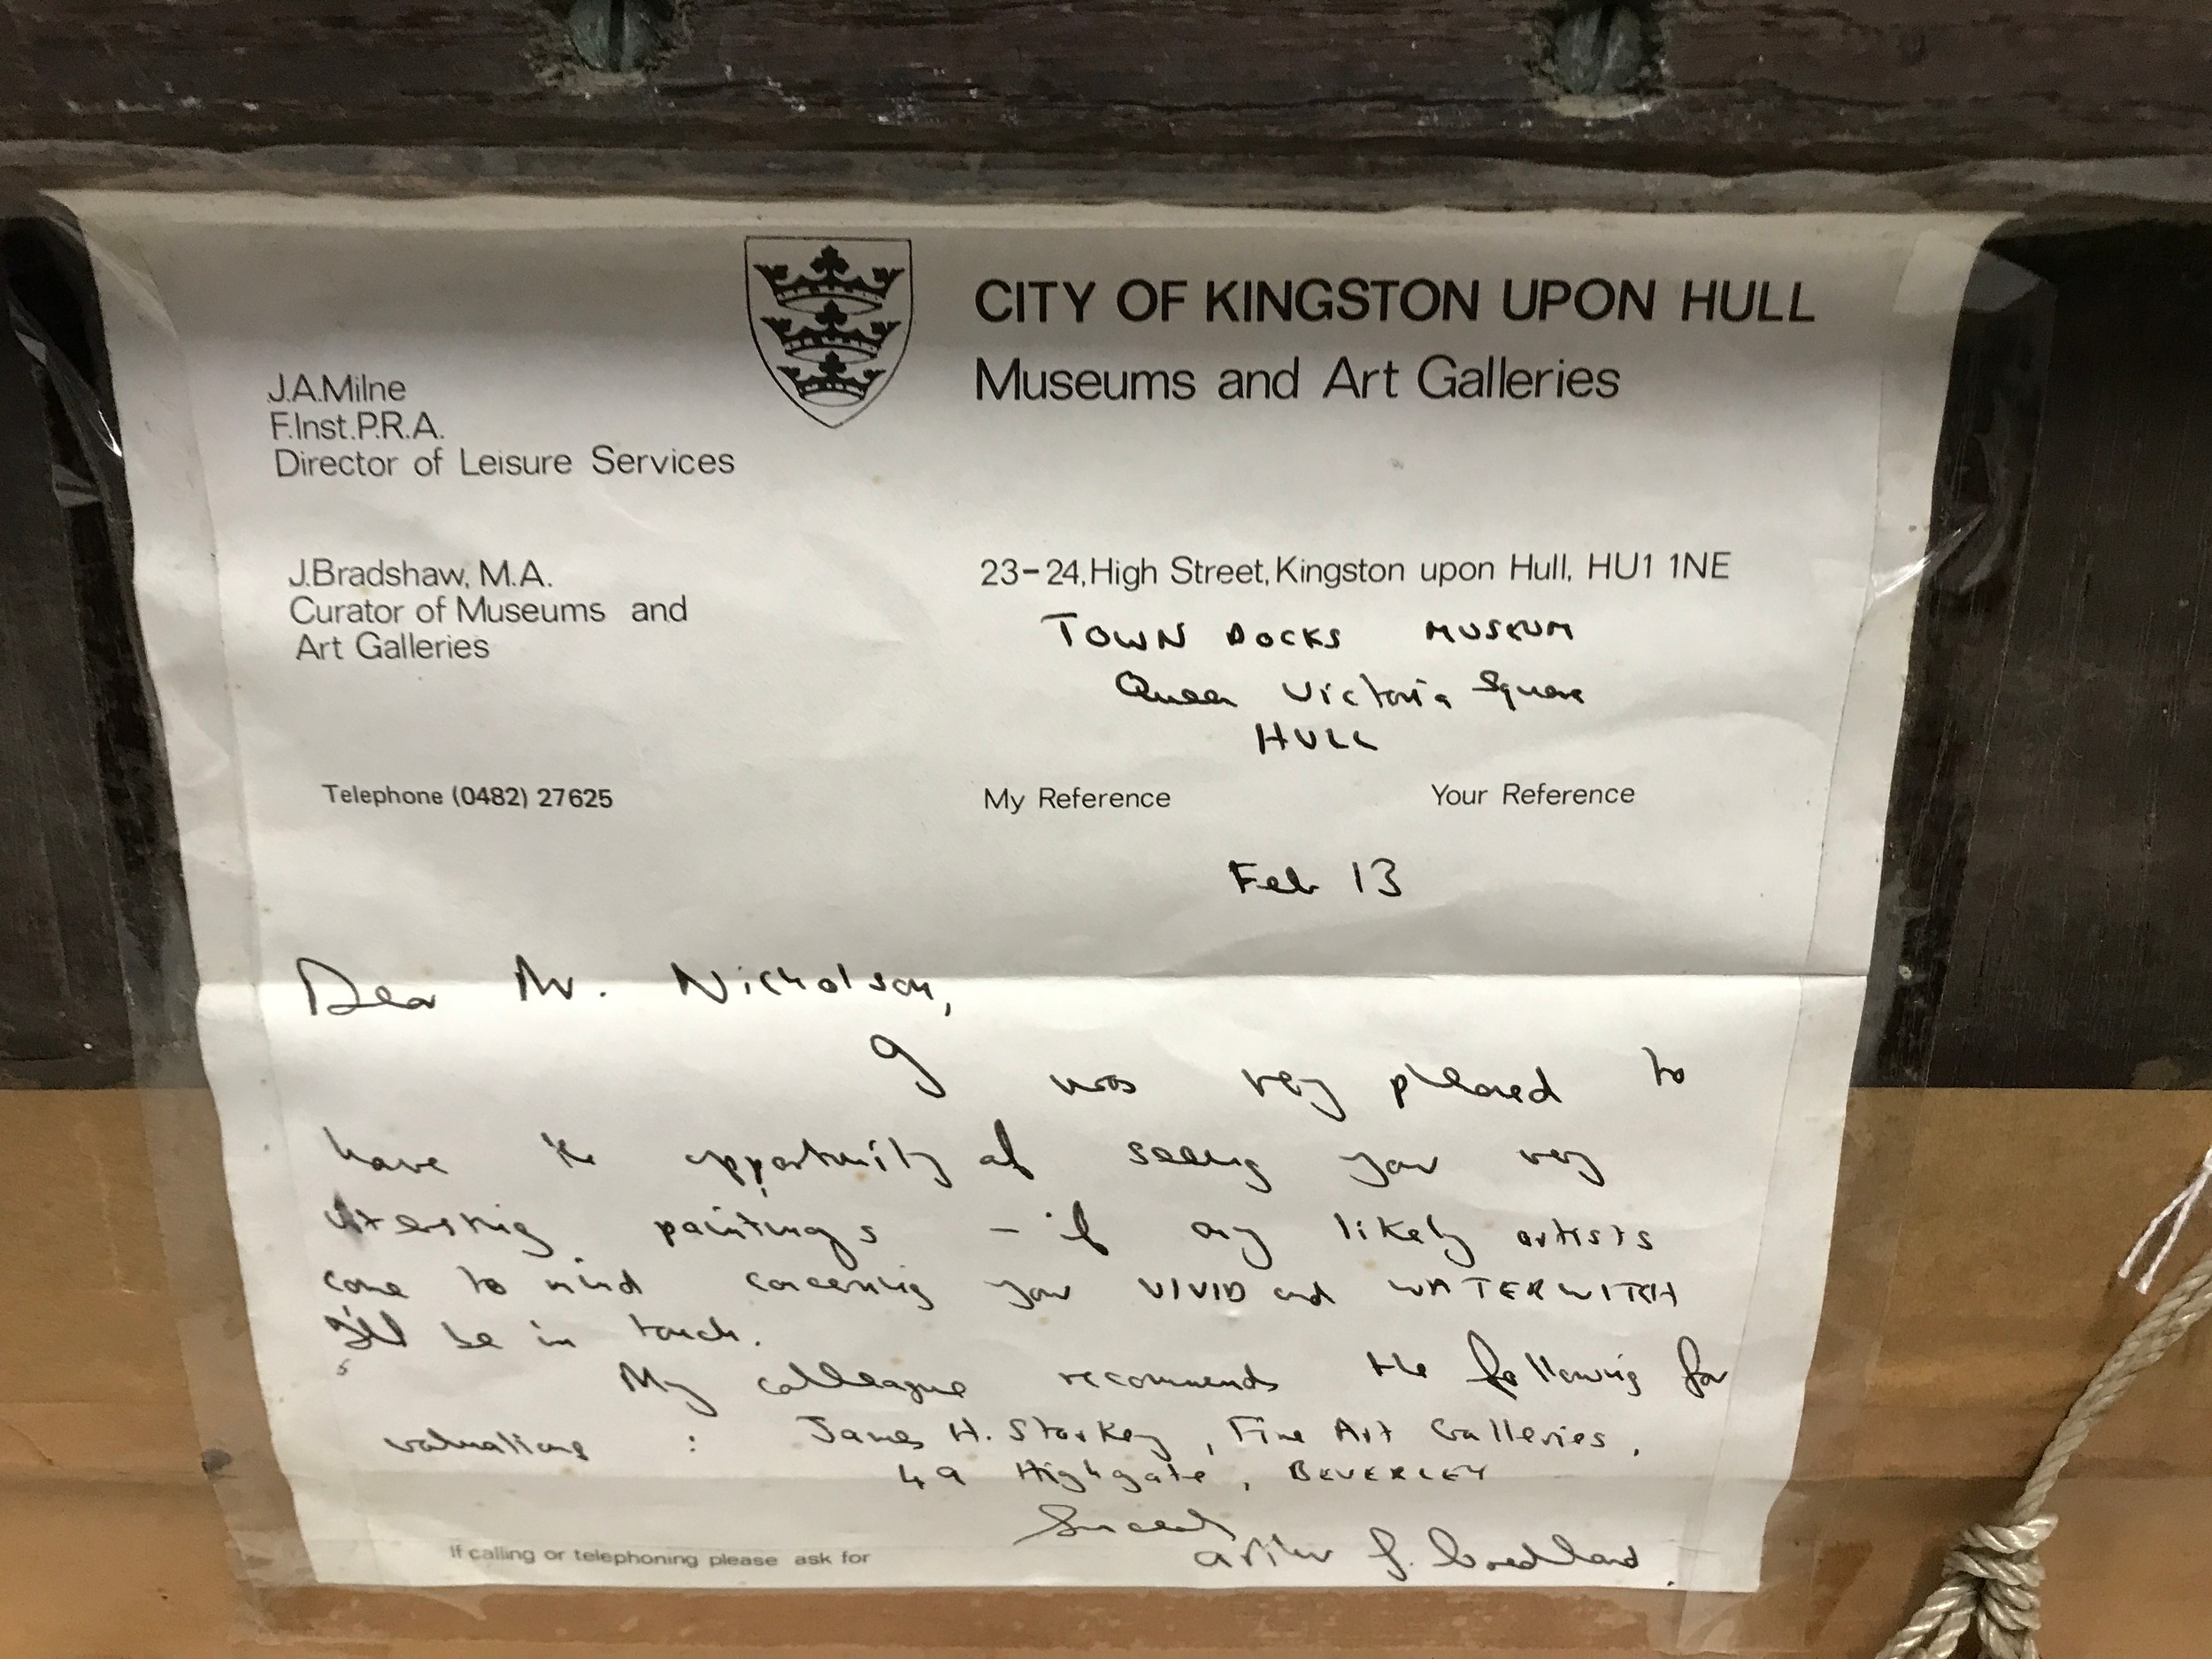 CITY OF KINGSTON UPON HULL
Museums and Art Galleries
J.A.Milne
F.Inst.P.R.A.
Director of Leisure Services
J.Bradshaw, M.A.
Curator of Museums and
Art Galleries
23-24, High Street, Kingston upon Hull, HU1 1NE
TOWN DOCKS MUSEUM
Queen Victoria Square
HULL
Telephone (0482) 27625
My Reference
Your Reference
Feb 13
Dear Mr. Nicholson,
I was very pleased to
have the opportunity of seeing your very
interesting paintings - if any likely artists
come to mind concerning your VIVID and WATERWITCH
I'll be in touch.
My colleague recommends the following for
valuations : James H. Starkey, Fine Art Galleries,
49 Highgate, BEVERLEY
Sincerely
Arthur G. Credland.
If calling or telephoning please ask for